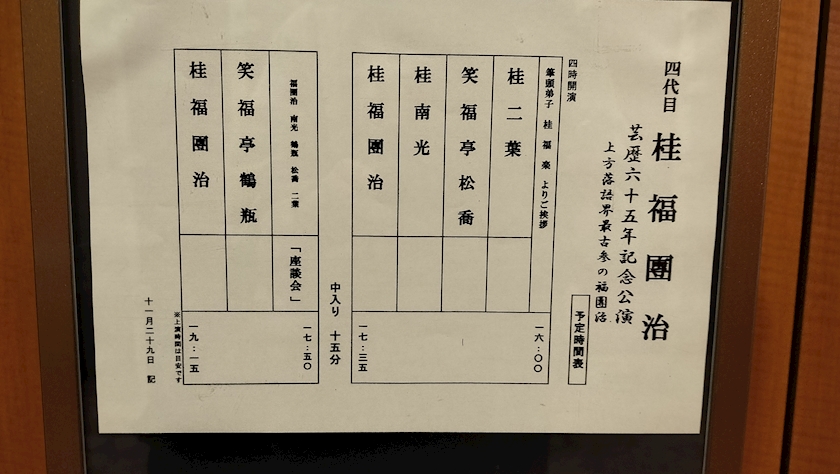 四代目 桂福團治
芸歴六十五年記念公演
上方落語界最古参の福團治
予定時間表
四時開演
筆頭弟子 桂 福楽 よりご挨拶
一六:〇〇
桂二葉
笑福亭松喬
桂南光
桂福團治
一七:三五
中入り 十五分
福團治 南光 鶴瓶 松喬 二葉
「座談会」
一七:五〇
笑福亭鶴瓶
桂福團治
一九:一五
※上演時間は目安です
十一月二十九日 記